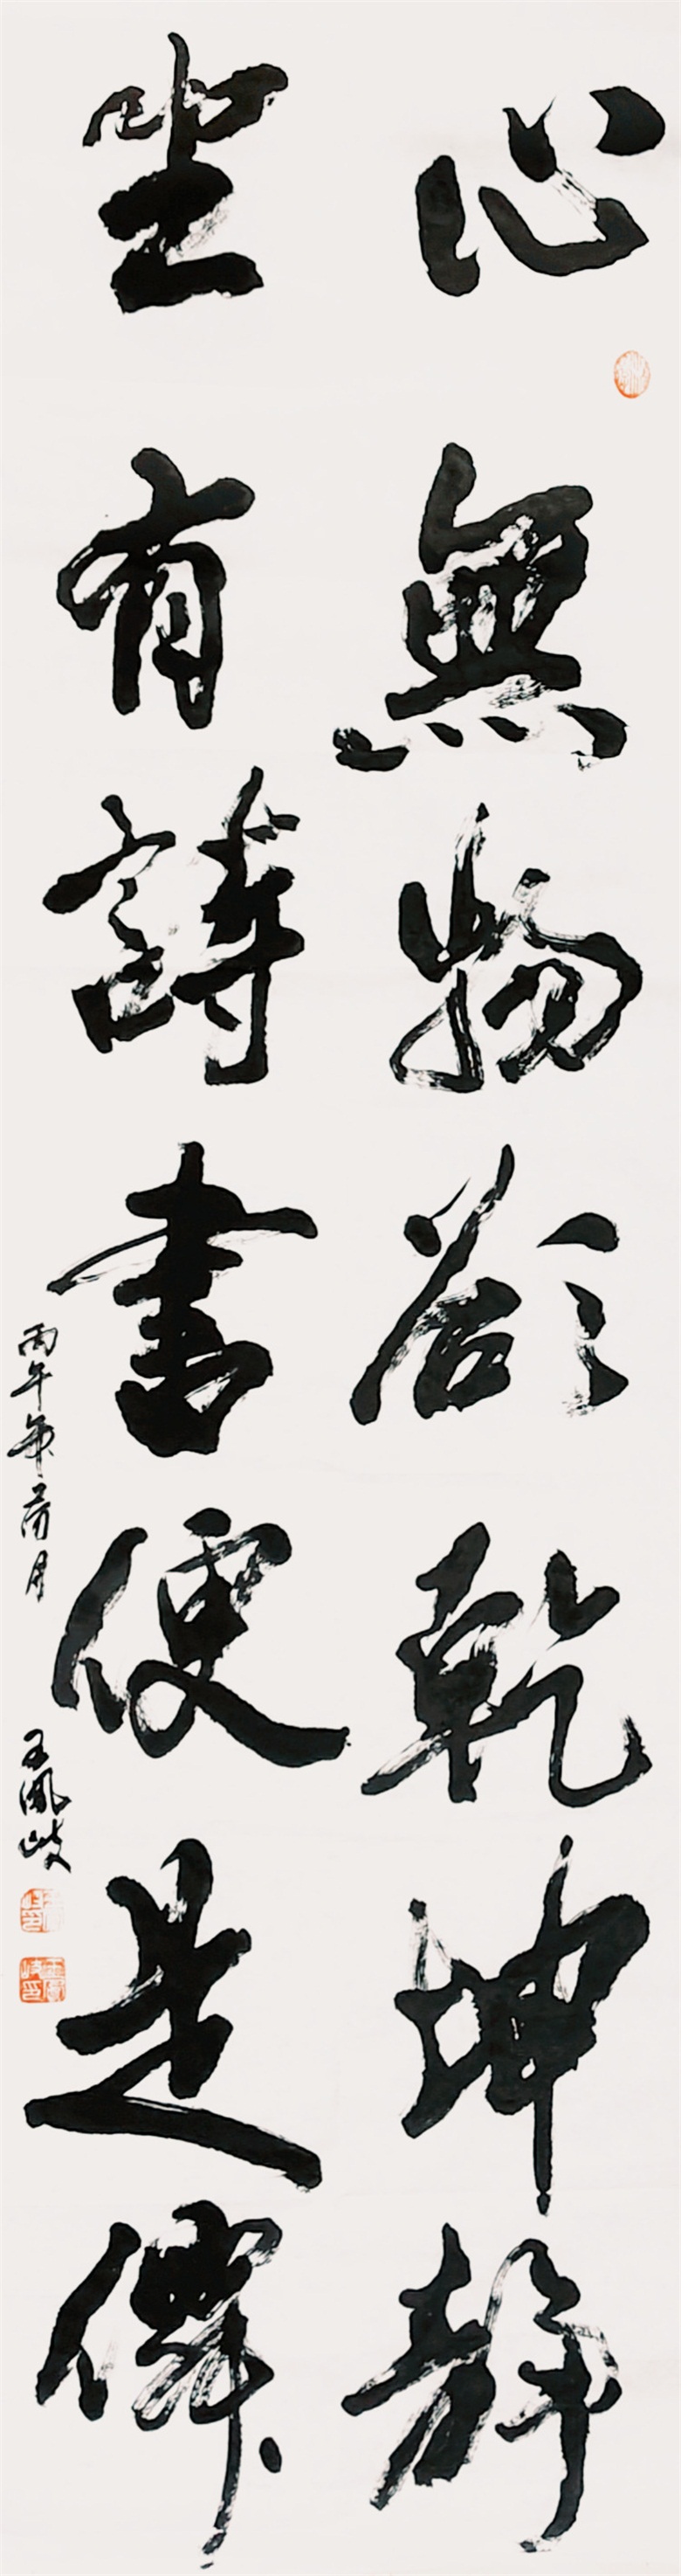 心無物欲乾坤静
坐有詩書便是僊
丙午年荷月
王鳳岐